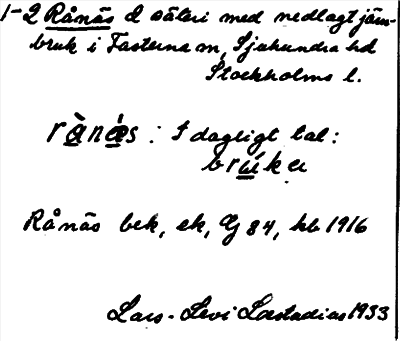 1-2 Rånäs d säteri med nedlagt järn-
bruk i Fasterna sn, Sjuhundra hd
Stockholms l.
rå̀nä́s : I dagligt tal:
brú̶ke
Rånäs bek, ek, Gg 84, hb 1916
Lars-Levi Læstadius 1933